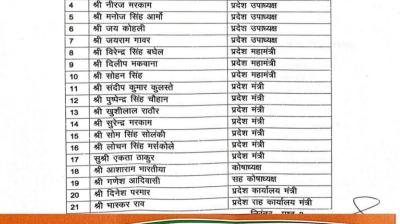 4 श्री नीरज मरकाम प्रदेश उपाध्यक्ष
5 श्री मनोज सिंह आर्मो प्रदेश उपाध्यक्ष
6 श्री जय कोहली प्रदेश उपाध्यक्ष
7 श्री जयराम गावर प्रदेश उपाध्यक्ष
8 श्री विरेन्द्र सिंह बघेल प्रदेश महामंत्री
9 श्री दिलीप मकवाना प्रदेश महामंत्री
10 श्री सोहन सिंह प्रदेश महामंत्री
11 श्री संदीप कुमार कुलस्ते प्रदेश मंत्री
12 श्री पुष्पेन्द्र सिंह चौहान प्रदेश मंत्री
13 श्री खुशीलाल राठौर प्रदेश मंत्री
14 श्री सुरेन्द्र मरकाम प्रदेश मंत्री
15 श्री सोम सिंह सोलंकी प्रदेश मंत्री
16 श्री लोचन सिंह मर्सकोले प्रदेश मंत्री
17 सुश्री एकता ठाकुर प्रदेश मंत्री
18 श्री आशाराम भारतीया कोषाध्यक्ष
19 श्री गणेश आदिवासी सह कोषाध्यक्ष
20 श्री दिनेश परमार प्रदेश कार्यालय मंत्री
21 श्री भास्कर राव प्रदेश सह कार्यालय मंत्री